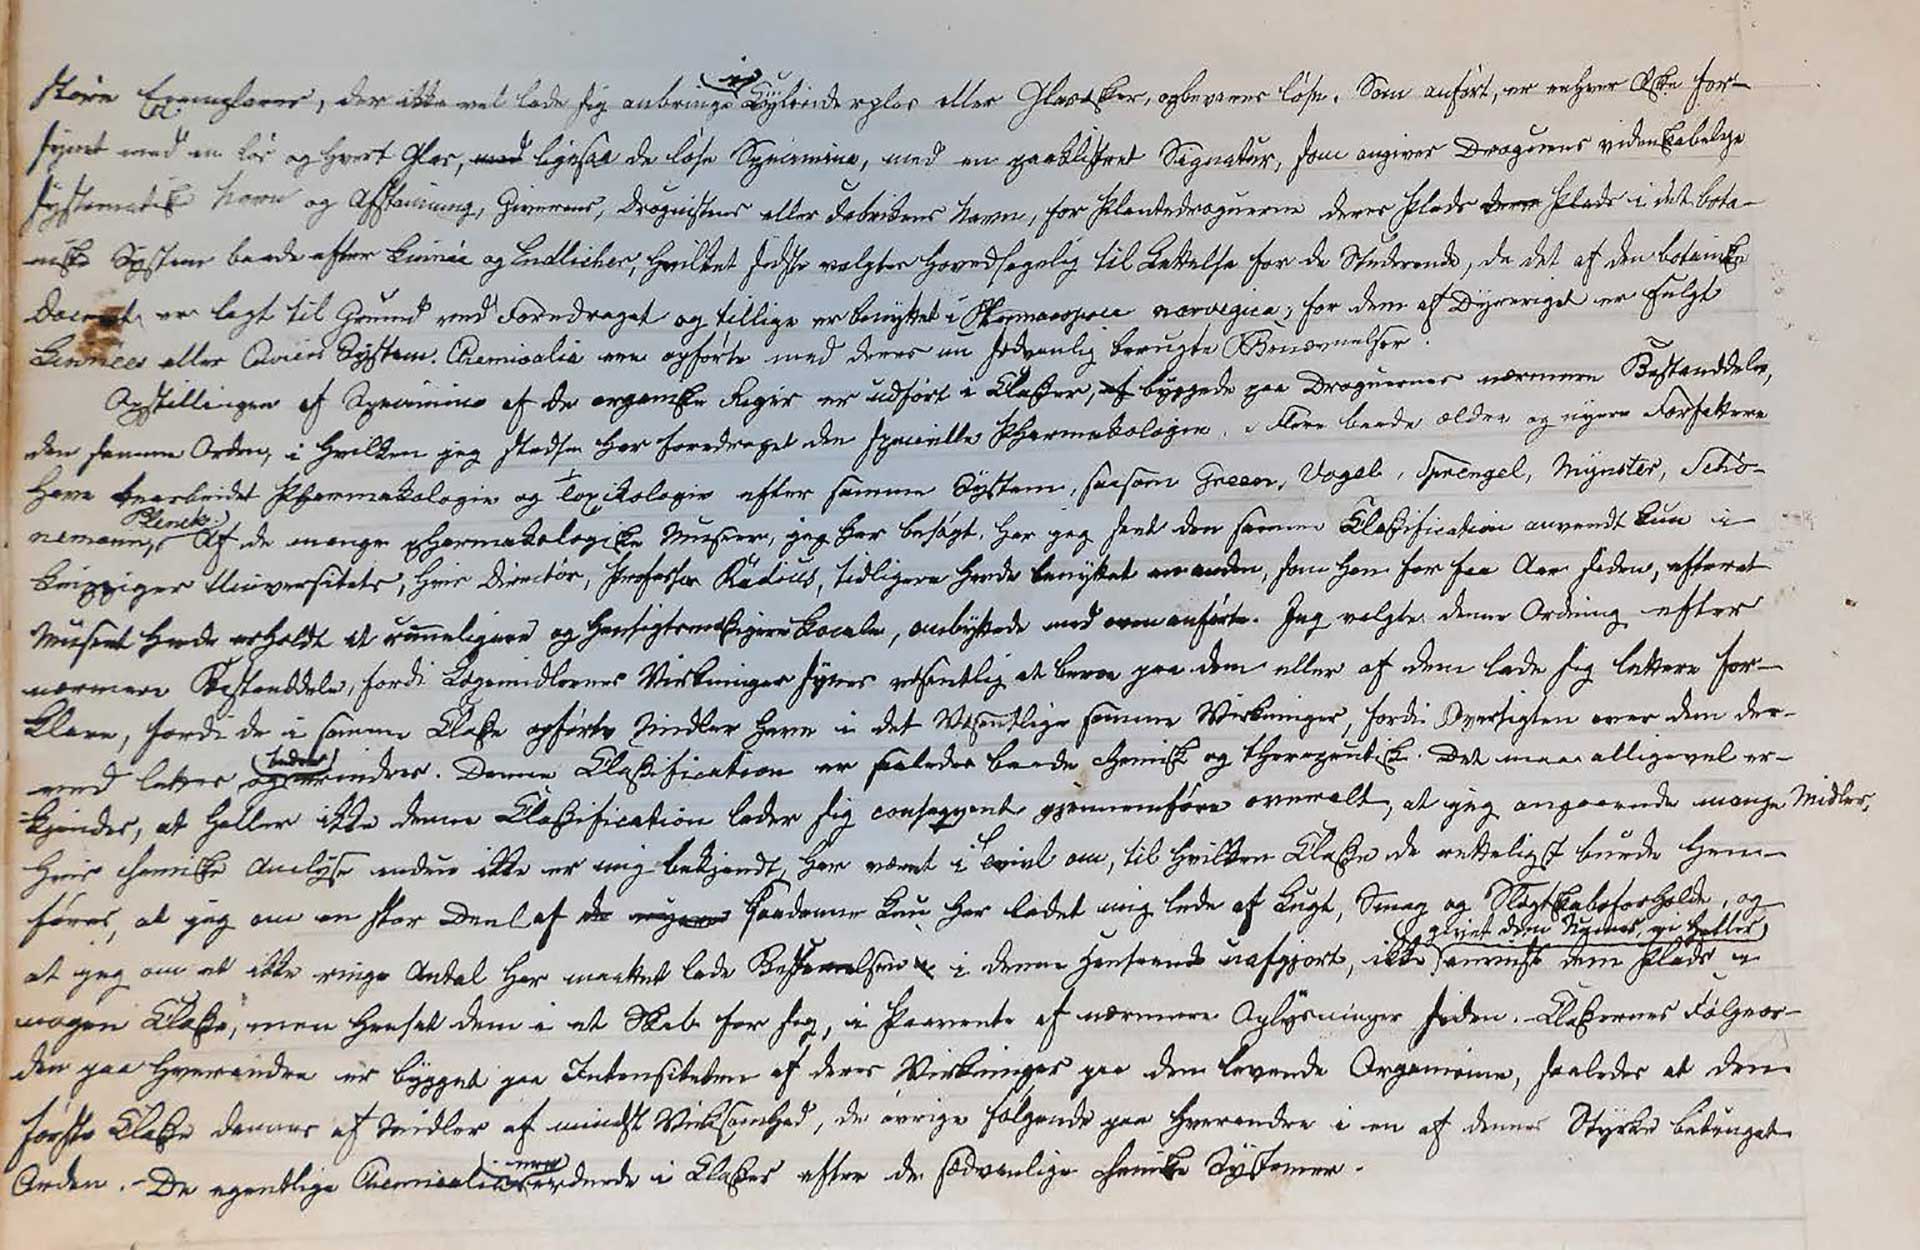 större Exemplarer, der ikke vel lade sig anbringe i Cylinderglas eller Glasæsker, opbevares løse. Som anført, er enhver Æske for-
synet med en Lös og hvert Glas, med ligesaa de løse Specimina, med en paaklistret Signatur, som angiver Droguens videnskabelige
systematiske Navn og Afstamning, Giverens, Droguistens eller Fabrikens Navn, for Plantedroguerne deres Plads deres Plads i det bota-
niske System baade efter Linnée og Endlicher, hvilket sidste valgtes hovedsagelig til Lettelse for de Studerende, da det af den botaniske
Docent er lagt til Grund ved Foredraget og tillige er benyttet i Pharmacopoea norvegica; for dem af Dyreriget er fulgt
Linnées eller Cuviers System. Chemicalia ere opførte med deres nu sædvanlig brugte Benævnelser.
Opstillingen af Specimina af de organiske Riger er udført i Classer, af byggede paa Droguernes nærmere Bestanddele,
den samme Orden, i hvilken jeg stedse har foredraget den specielle Pharmakologie. Flere baade ældre og nyere Forfattere
have bearbeidet Pharmakologie og Toxikologie efter samme System, saasom Green, Vogel, Sprengel, Mynster, Schö-
nemann, Plenck. Af de mange pharmakologiske Museer, jeg har besøgt, har jeg seet den samme Classification anvendt kun i
Leipziger Universitets, hvis Director, Professor Radius, tidligere havde benyttet en anden, som han for faa Aar siden, efterat
Museet havde erholdt et rummeligere og hensigtsmæssigere Locale, ombyttede med ovenanførte. Jeg valgte denne Ordning efter
nærmere Bestanddele, fordi Lægemidlernes Virkninger synes væsentlig at beroe paa dem eller af dem lade sig lettere for-
klare, fordi de i samme Classe opførte Midler have i det Væsentlige samme Virkninger, fordi Oversigten over dem der-
ved lettes og erindres. Denne Classification er saaledes baade chemisk og therapeutisk. Det maa alligevel er-
kjendes, at heller ikke denne Classification lader sig conseqvent gjennemføre overalt, at jeg angaaende mange Midler,
hvis chemiske Analyse enden ikke er mig bekjendt, har været i Tvivl om, til hvilken Classe de retteligst burde hen-
føres, at jeg om en stor Deel af de nyere saadanne kun har ladet mig lede af Lugt, Smag og Slægtskabsforholde, og
at jeg om et ikke ringe Antal har maattet lade Bestemmelsen i denne Henseende uafgjort, ikke givet dem Numer, ei heller anviist dem Plads i
nogen Classe, men hensat dem i et Skab for sig, i Paavente af nærmere Oplysninger siden. – Classernes Følgeor-
den paa hverandre er bygget paa Intensiteten af deres Virkninger paa den levende Organisme, saaledes at den
første Classe dannes af Midler af mindst Virksomhed, de øvrige følgende paa hverandre i en af dennes Styrke betinget
Orden. – De egentlige Chemicalia ere ordnede i Classer efter de sædvanlige chemiske Systemer.